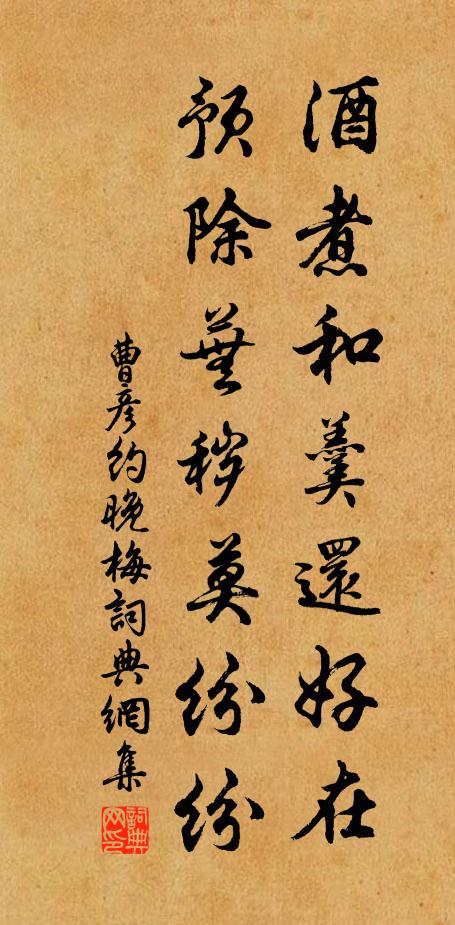 酒煮和羹還好在
預除蕪穢莫紛紛
曹彥約晚梅詞典網集
詞典网印